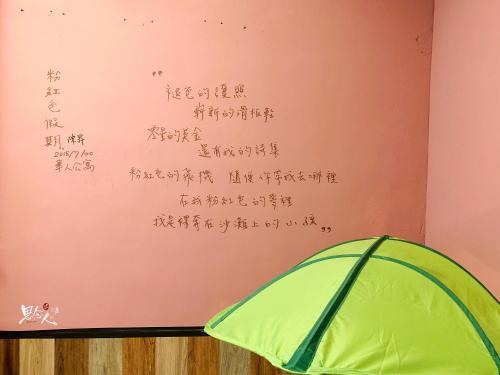 粉紅色假期 陳昇
2015/7/20
華人公寓
"褪色的護照
嶄新的滑板車
零星的美金
還有我的詩集
粉紅色的飛機 隨便你帶我去哪裡
在我粉紅色的夢裡
我是裸奔在沙灘上的小孩"